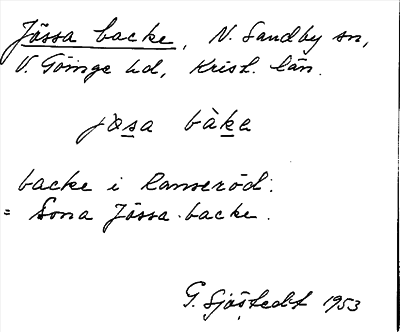 Jössa backe, N. Sandby sn,
V. Göinge hd, Krist. län.
jøsa bàka
backe i Ranseröd.
= Sona Jössa backe.
G. Sjöstedt 1953